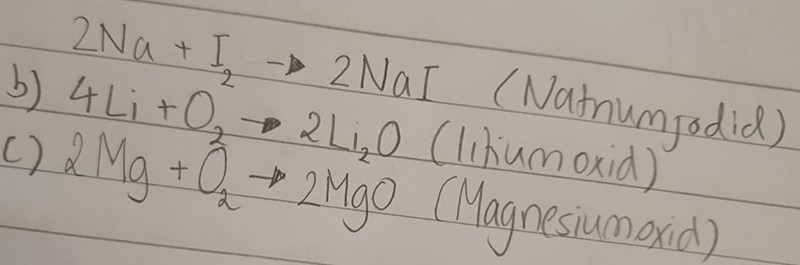 2Na + I₂ → 2NaI (Natriumjodid)
b) 4Li + O₂ → 2Li₂O (litiumoxid)
c) 2Mg + O₂ → 2MgO (Magnesiumoxid)